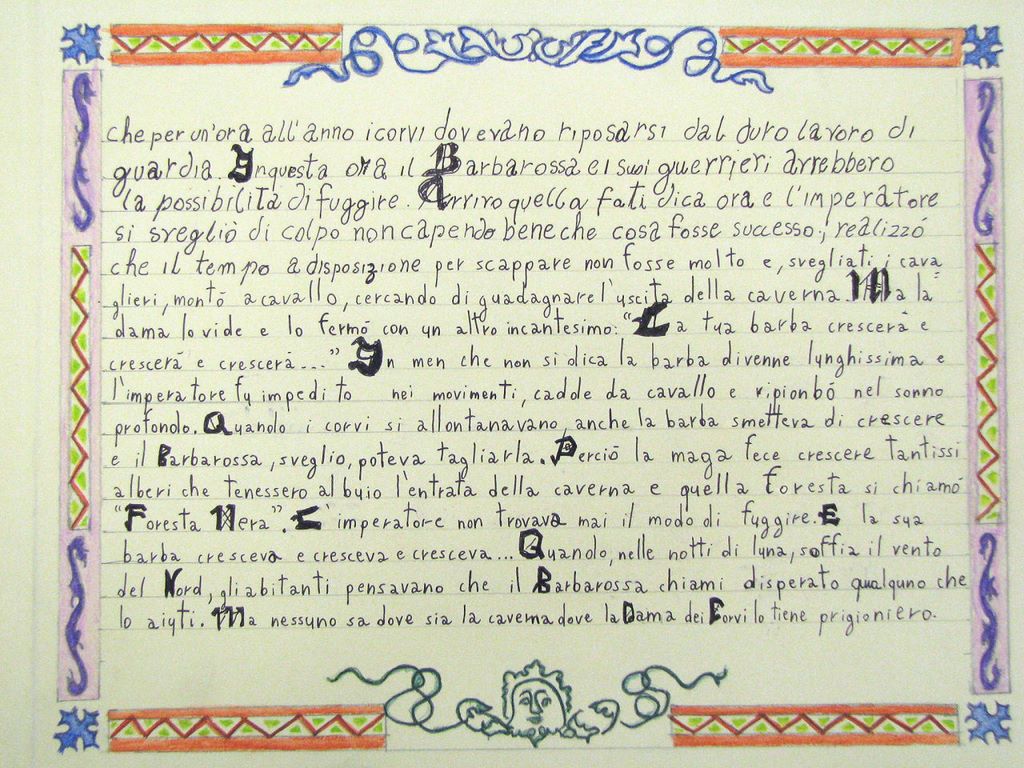 che per un'ora all'anno i corvi dovevano riposarsi dal duro lavoro di
guardia. In questa ora il Barbarossa e i suoi guerrieri avrebbero
la possibilità di fuggire. Arrivo quella fatidica ora e l'imperatore
si svegliò di colpo non capendo bene che cosa fosse successo; realizzó
che il tempo a disposizione per scappare non fosse molto e, svegliati i cava
glieri, montó a cavallo, cercando di guadagnare l'uscita della caverna. Ma la
dama lo vide e lo fermó con un altro incantesimo: "La tua barba crescerá e
crescerá e crescerá..." In men che non si dica la barba divenne lunghissima e
l'imperatore fu impedito nei movimenti, cadde da cavallo e ripionbó nel sonno
profondo. Quando i corvi si allontanavano, anche la barba smetteva di crescere
e il Barbarossa, sveglio, poteva tagliarla. Perció la maga fece crescere tantissi
alberi che tenessero al buio l'entrata della caverna e quella foresta si chiamó
"Foresta Nera". L'imperatore non trovava mai il modo di fuggire. E la sua
barba cresceva e cresceva e cresceva... Quando, nelle notti di luna, soffia il vento
del Nord, gli abitanti pensavano che il Barbarossa chiami disperato qualcuno che
lo aiuti. Ma nessuno sa dove sia la caverna dove la Dama dei Corvi lo tiene prigioniero.